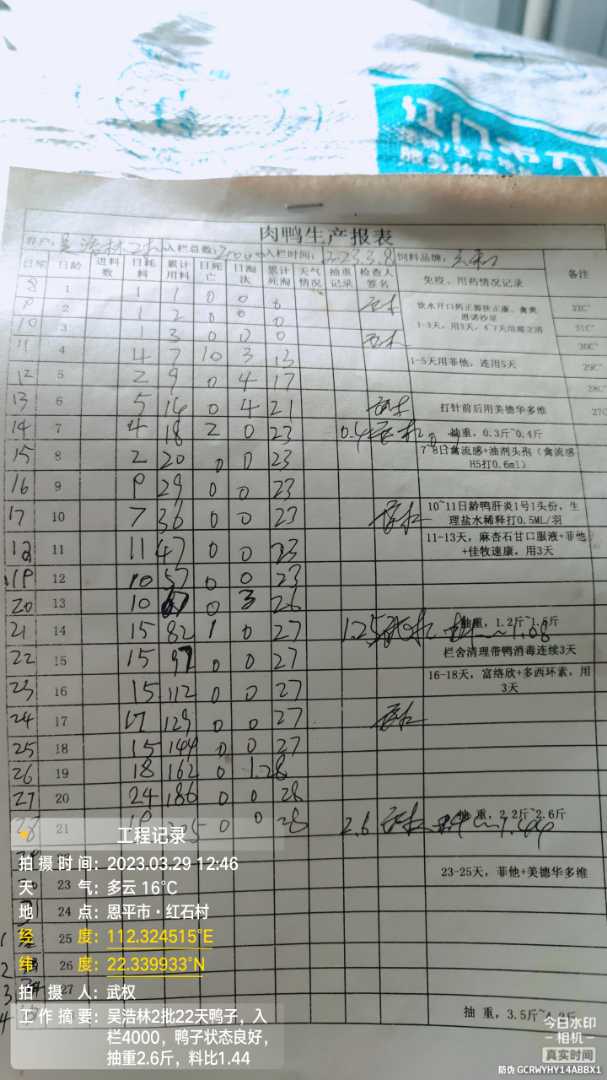 肉鸭生产报表
养户: 吴浩林2批 入栏总数: 入栏时间: 2023.3.8 饲料品牌:
日率 日龄 进料数 日耗料 累计用料 日死亡 日淘汰 累计死淘 天气情况 抽重记录 检查人签名 免疫、用药情况记录 备注
8 1 1 1 0 0 0
9 2 1 2 0 0 0 32C°
10 3 3 0 0 0 1-3天，用3天，4-7天 31C°
30C°
11 4 4 7 10 3 13 1-5天用菲他，连用5天
12 5 2 9 0 4 17 29C°
28C°
13 6 5 14 0 4 21 打针前后用美德华多维 27C
14 7 4 18 2 0 23 0.4 抽重，0.3斤~0.4斤
15 8 2 20 0 0 23 7~8日禽流感+油剂头孢（禽流感H5打0.6ml）
16 9 9 29 0 0 23
17 10 7 36 0 0 23 10~11日龄鸭肝炎1号1头份，生理盐水稀释打0.5ML/羽
18 11 11 47 0 0 23 11-13天，麻杏石甘口服液+菲他+佳牧速康，用3天
19 12 10 57 0 0 23
20 13 10 67 0 3 26
21 14 15 82 1 0 27 1.25 抽重，1.2斤~1.5斤 1.08
22 15 15 97 0 0 27 栏舍清理带鸭消毒连续3天
23 16 15 112 0 0 27 16-18天，富络欣+多西环素，用3天
24 17 17 129 0 0 27
25 18 15 144 0 0 27
26 19 18 162 0 1 28
27 20 24 186 0 0 28
28 21 19 205 0 0 28 2.6 抽重，2.2斤~2.6斤 1.44
23 23-25天，菲他+美德华多维
24
25
26
27
抽重，3.5斤~4.2斤
工程记录
拍摄时间：2023.03.29 12:46
天气：多云 16℃
地点：恩平市·红石村
经度：112.324515°E
纬度：22.339933°N
拍摄人：武权
工作摘要：吴浩林2批22天鸭子，入
栏4000，鸭子状态良好，
抽重2.6斤，料比1.44
今日水印
相机
真实时间
防伪 GCRWYHY14ABBX1